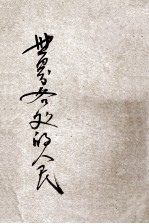 世界各处的人民